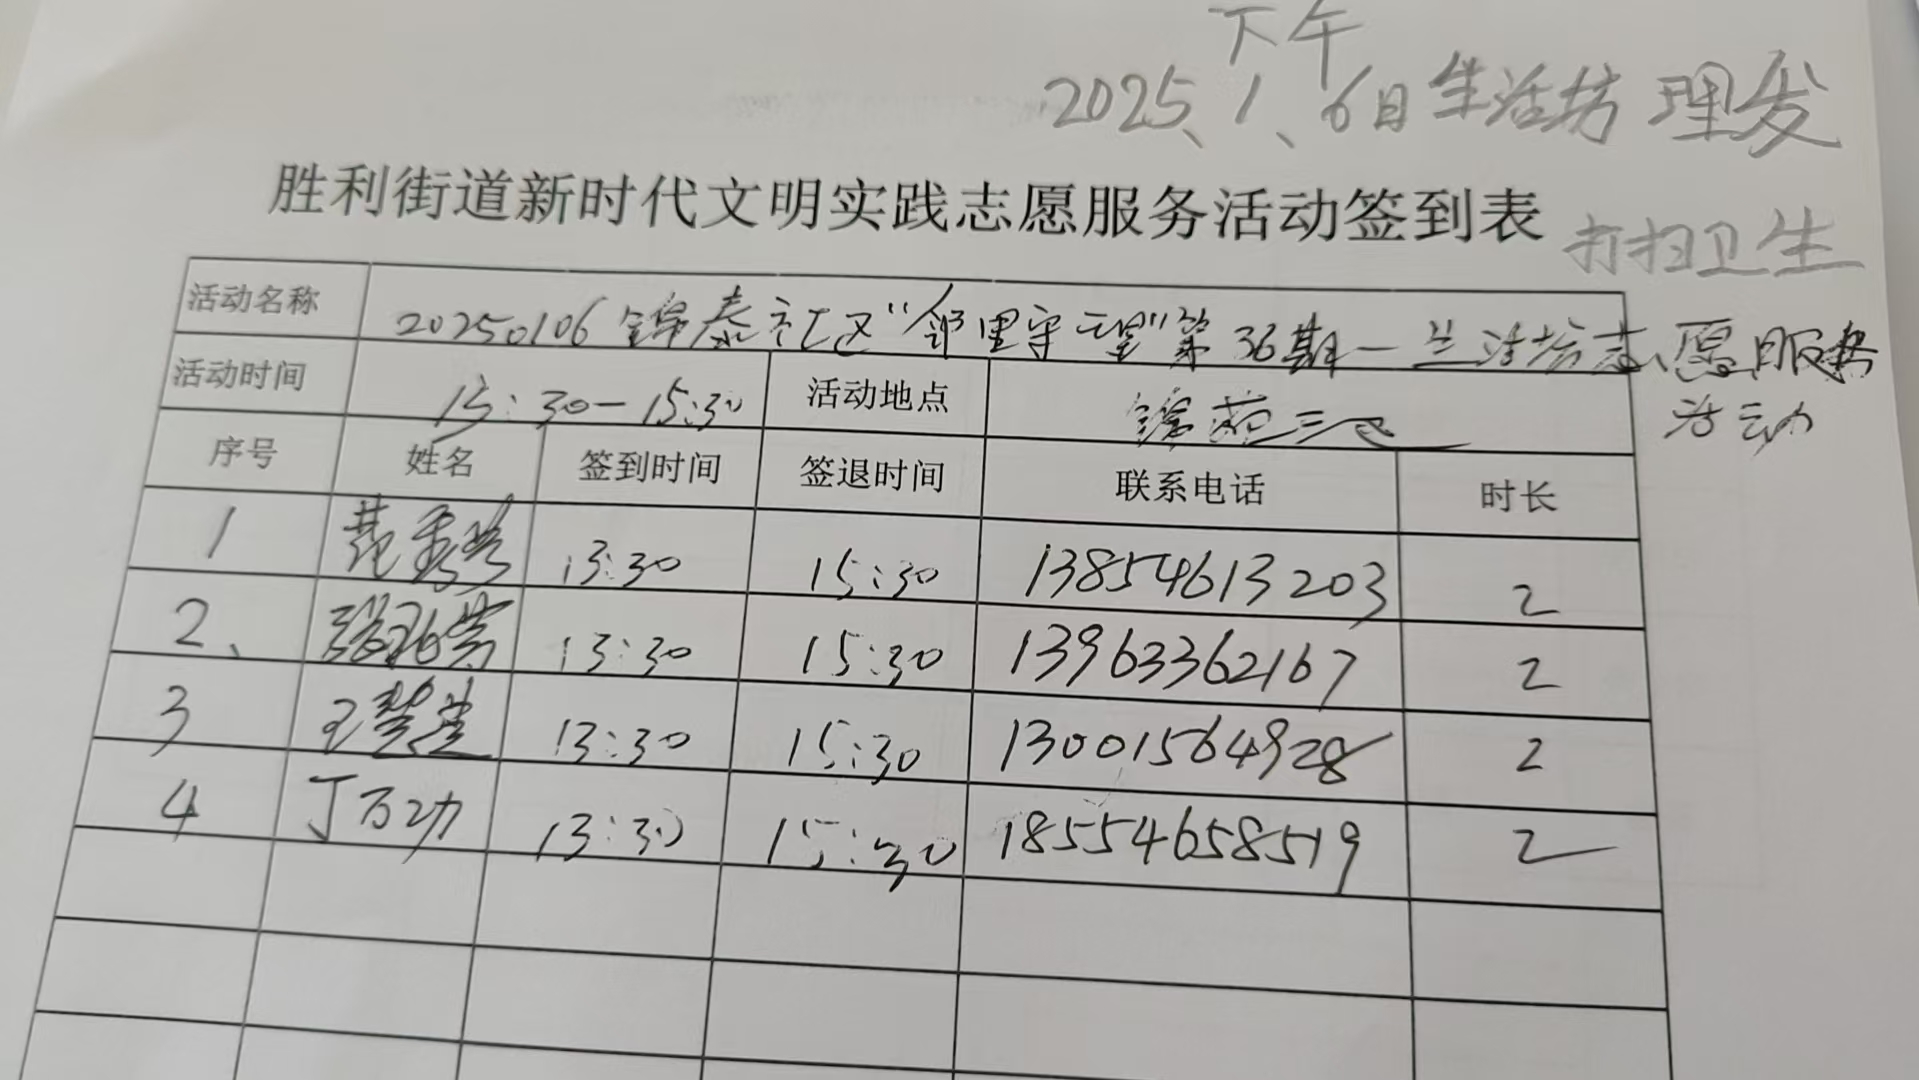 下午
2025、1、6日生活坊 理发
胜利街道新时代文明实践志愿服务活动签到表
打扫卫生
活动名称 20250106锦泰社区“邻里守望”第36期一生活坊志愿服务
活动
活动时间 13:30-15:30 活动地点 锦苑三区
序号 姓名 签到时间 签退时间 联系电话 时长
1 13:30 15:30 13854613203 2
2、 13:30 15:30 13963362167 2
3 王 13:30 15:30 13001564928 2
4 丁万功 13:30 15:30 18554658519 2